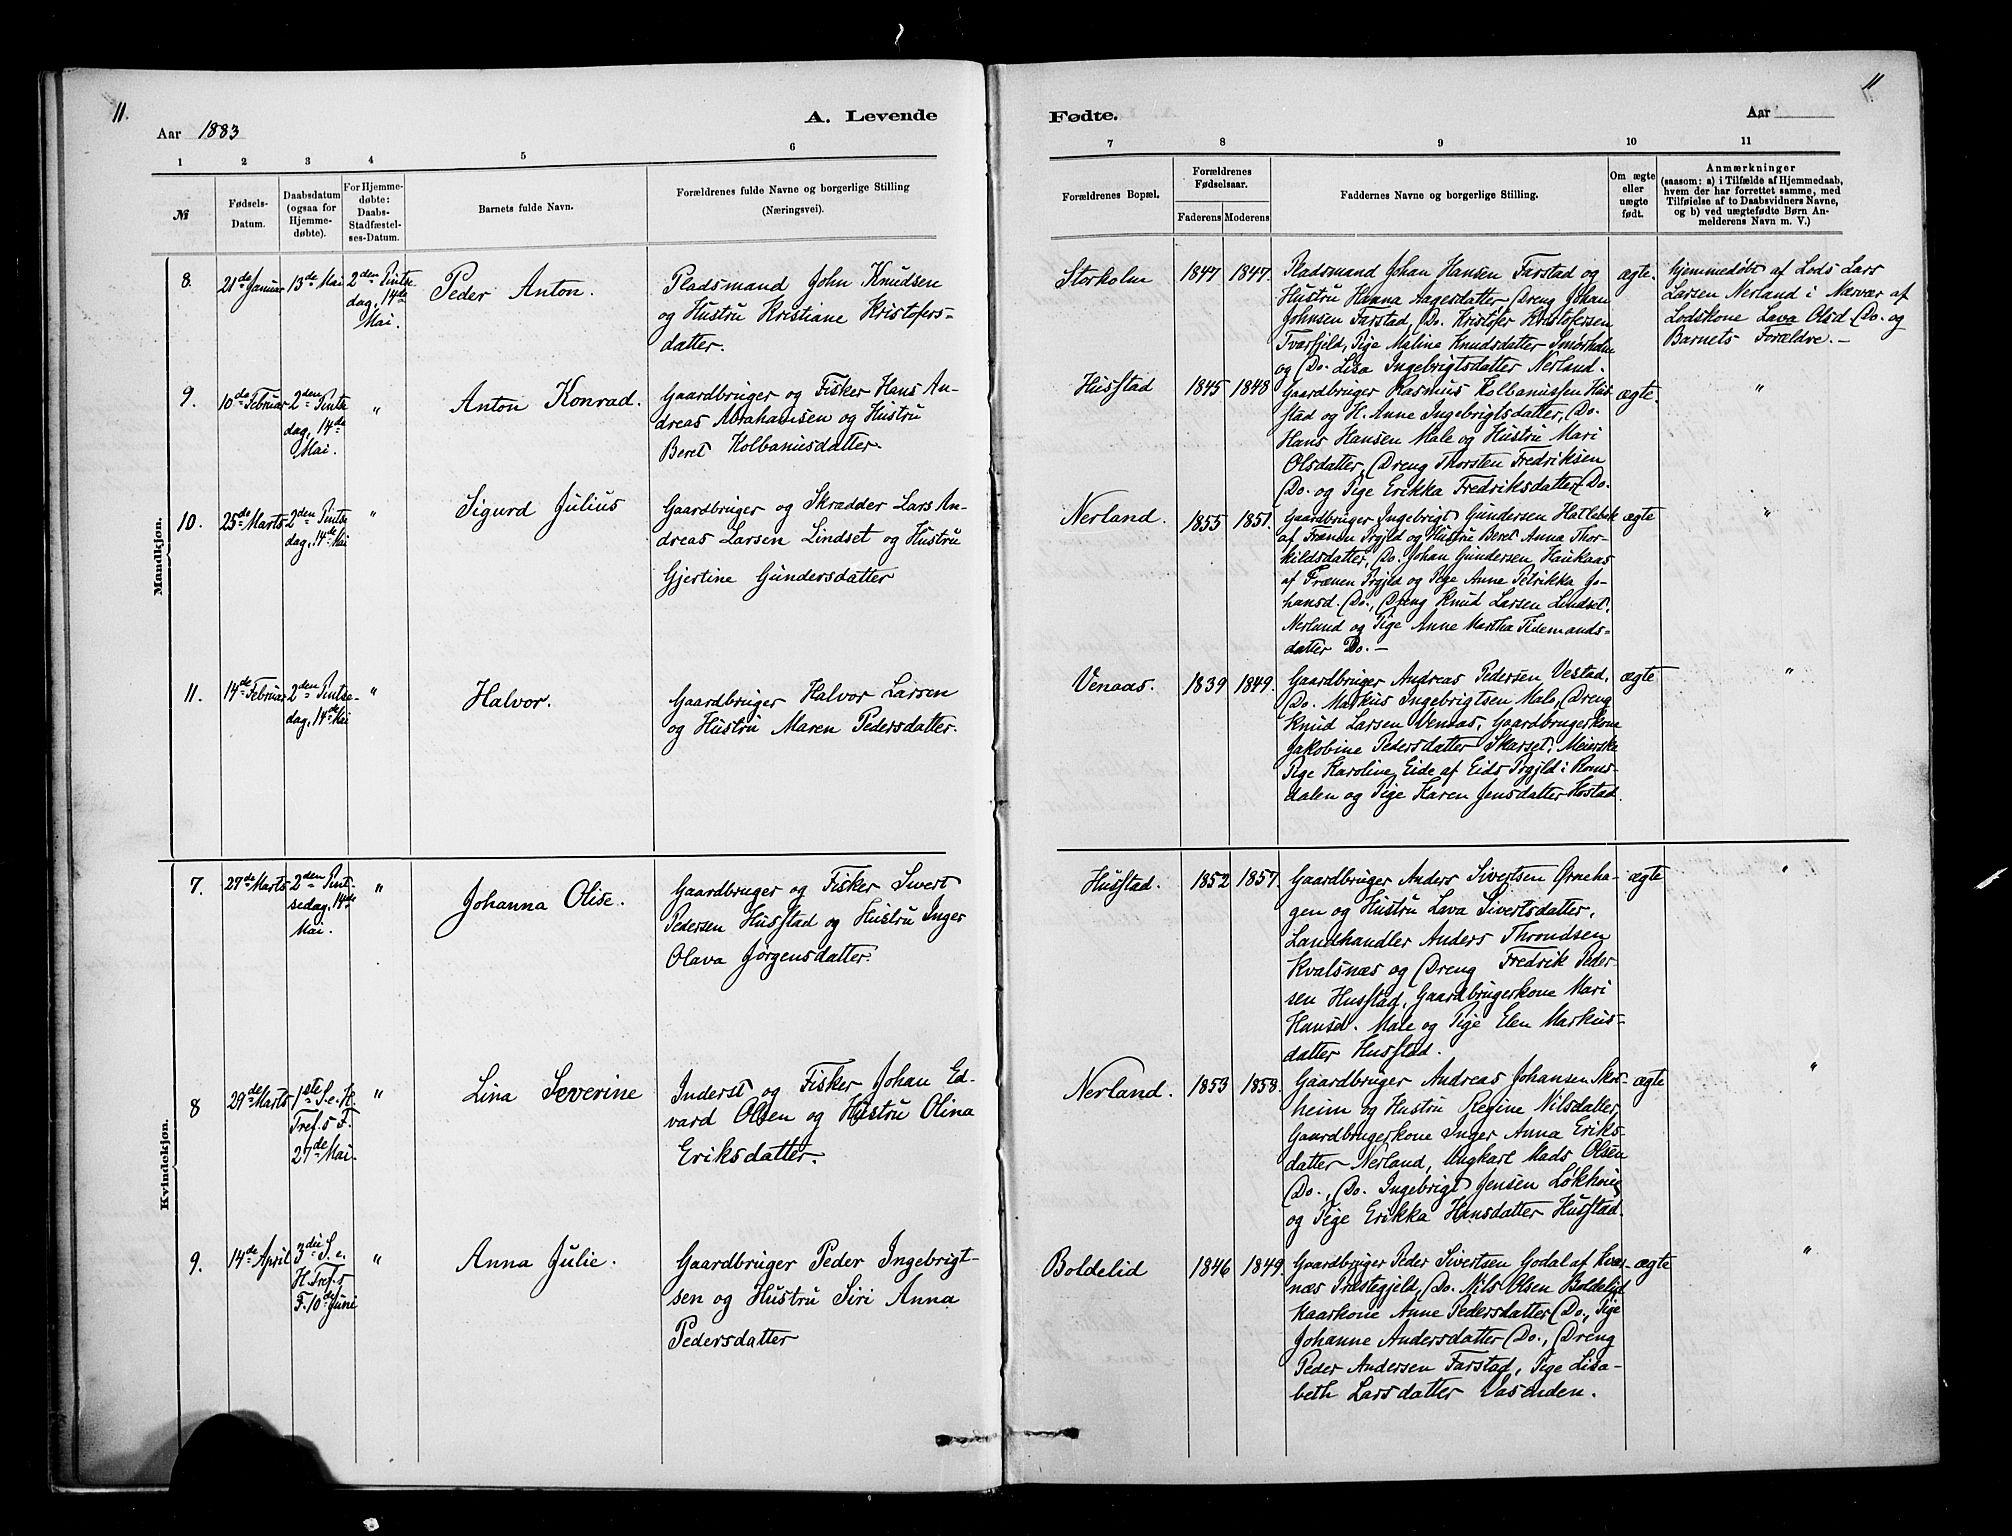 11.
Aar 1883
A. Levende
1 2 3 4 5 6
№
Fødsels-
Datum.
Daabsdatum
(ogsaa for
Hjemme-
døbte).
For Hjemme-
døbte:
Daabs-
Stadfæstel-
ses-Datum.
Barnets fulde Navn.
Forældrenes fulde Navne og borgerlige Stilling
(Næringsvei).
Mandkjøn.
8.
21de Januar
13de Mai
2den Pintse
dag, 14de
Mai.
Peder Anton.
Pladsmand John Knudsen
og Hustru Kristiane Kristofers-
datter.
9.
10de Februar
2den Pintse
dag, 14de
Mai.
"
Anton Konrad.
Gaardbruger og Fisker Hans An-
dreas Abrahamsen og Hustru
Beret Kolbanusdatter.
10.
25de Marts
2den Pintse
dag, 14de Mai
"
Sigurd Julius
Gaardbruger og Skrædder Lars An-
dreas Larsen Lindset og Hustru
Gjertine Gundersdatter
11.
14de Februar
2den Pintse-
dag, 14de Mai
"
Halvor.
Gaardbruger Halvor Larsen
og Hustru Maren Pedersdatter.
Kvindekjøn.
7.
27de Marts
2den Pint-
sedag, 14de
Mai.
"
Johanna Olise.
Gaardbruger og Fisker Sivert
Pedersen Husstad og Hustru Inger
Olava Jørgensdatter.
8
29de Marts
1ste S. e. H.
Tref. s F.
27de Mai.
"
Lina Severine
Inderst og Fisker Johan Ed-
vard Olsen og Hustru Olina
Eriksdatter.
9.
14de April
3die S. e.
H. Tref. s
F. 10de Juni
"
Anna Julie.
Gaardbruger Peder Ingebrigt-
sen og Hustru Siri Anna
Pedersdatter
11
Fødte.
Aar
7 8 9 10 11
Forældrenes Bopæl.
Forældrenes
Fødselsaar.
Faderens Moderens
Faddernes Navne og borgerlige Stilling.
Om ægte
eller
uægte
født.
Anmærkninger
(saasom: a) i Tilfælde af Hjemmedaab,
hvem der har forrettet samme, med
Tilføielse af to Daabsvidners Navne,
og b) ved uægtefødte Børn An-
melderens Navn m. V.)
Storholm
1847
1847.
Pladsmand Johan Hansen Farstad og
Hustru Hanna Aagesdatter, Dreng Johan
Johnsen Farstad, Do. Kristofer Kristofersen
Tverfjeld, Pige Maline Knudsdatter Smørholm
og Do. Lisa Ingebrigtsdatter Nerland.
ægte.
Hjemmedøbt af Lods Lars
Larsen Nerland i Nærvær af
Lodskone Lava Olsd. Do. og
Barnets Forældre.-
Husstad
1845
1848
Gaardbruger Rasmus Kolbanussen Hus-
stad og H. Anne Ingebrigtsdatter, Do.
Hans Hansen Male og Hustru Mari
Olsdatter, Dreng Thorsten Fredriksen
Do. og Pige Erikka Fredriksdatter Do.
ægte.
"
Nerland.
1855
1851.
Gaardbruger Ingebrigt Gundersen Hatlebak
af Frænen Prgjld og Hustru Beret Anna Thor-
kildsdatter, Do. Johan Gundersen Haukaas
af Frænen Prgjld og Pige Anne Petrikka Jo-
hansd. Do., Dreng Knud Larsen Lindset,
Nerland og Pige Anne Martha Tidemands-
datter Do.-
ægte
"
Venaas.
1839
1849.
Gaardbruger Andreas Pedersen Vestad,
Do. Markus Ingebrigtsen Male, Dreng
Knud Larsen Venaas, Gaardbrugerkone
Jakobine Pedersdatter Skarset, Meierske
Pige Karoline Eide af Eids Prgjld i Roms-
dalen og Pige Karen Jensdatter Hostad.
ægte
"
Husstad.
1852
1857.
Gaardbruger Anders Sivertsen Ørneha-
gen og Hustru Lava Sivertsdatter,
Landhandler Anders Throndsen
Kvalsnæs og Dreng Fredrik Peder-
sen Husstad, Gaardbrugerkone Mari
Hansd. Male og Pige Elen Markus-
datter Husstad.
ægte
"
Nerland.
1853
1858.
Gaardbruger Andreas Johansen Skot-
heim og Hustru Regine Nilsdatter,
Gaardbrugerkone Inger Anna Eriks-
datter Nerland, Ungkarl Mads Olsen
Do., Do. Ingebrigt Jensen Løkhoug
og Pige Erikka Hansdatter Husstad.
ægte
"
Boldelid
1846
1849.
Gaardbruger Peder Sivertsen Godal af Kvær-
næs Præstegjeld, Do. Nils Olsen Boldelid
Kaarkone Anne Pedersdatter Do., Pige
Johanne Andersdatter Do., Dreng
Peder Andersen Farstad, Pige Lisa-
beth Larsdatter Vasenden.
ægte
"